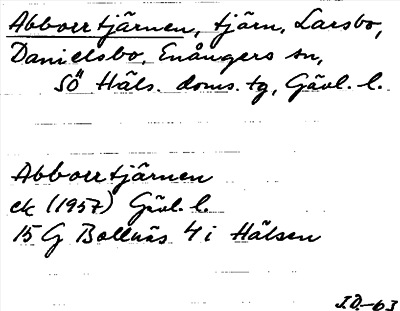 Abborrtjärnen, tjärn, Larsbo,
Danielsbo, Enångers sn,
SÖ Häls. doms. tg, Gävl. l.
Abborrtjärnen
ek (1957) Gävl. l.
15 G Bollnäs 4 i Hälsen
J.D.-63